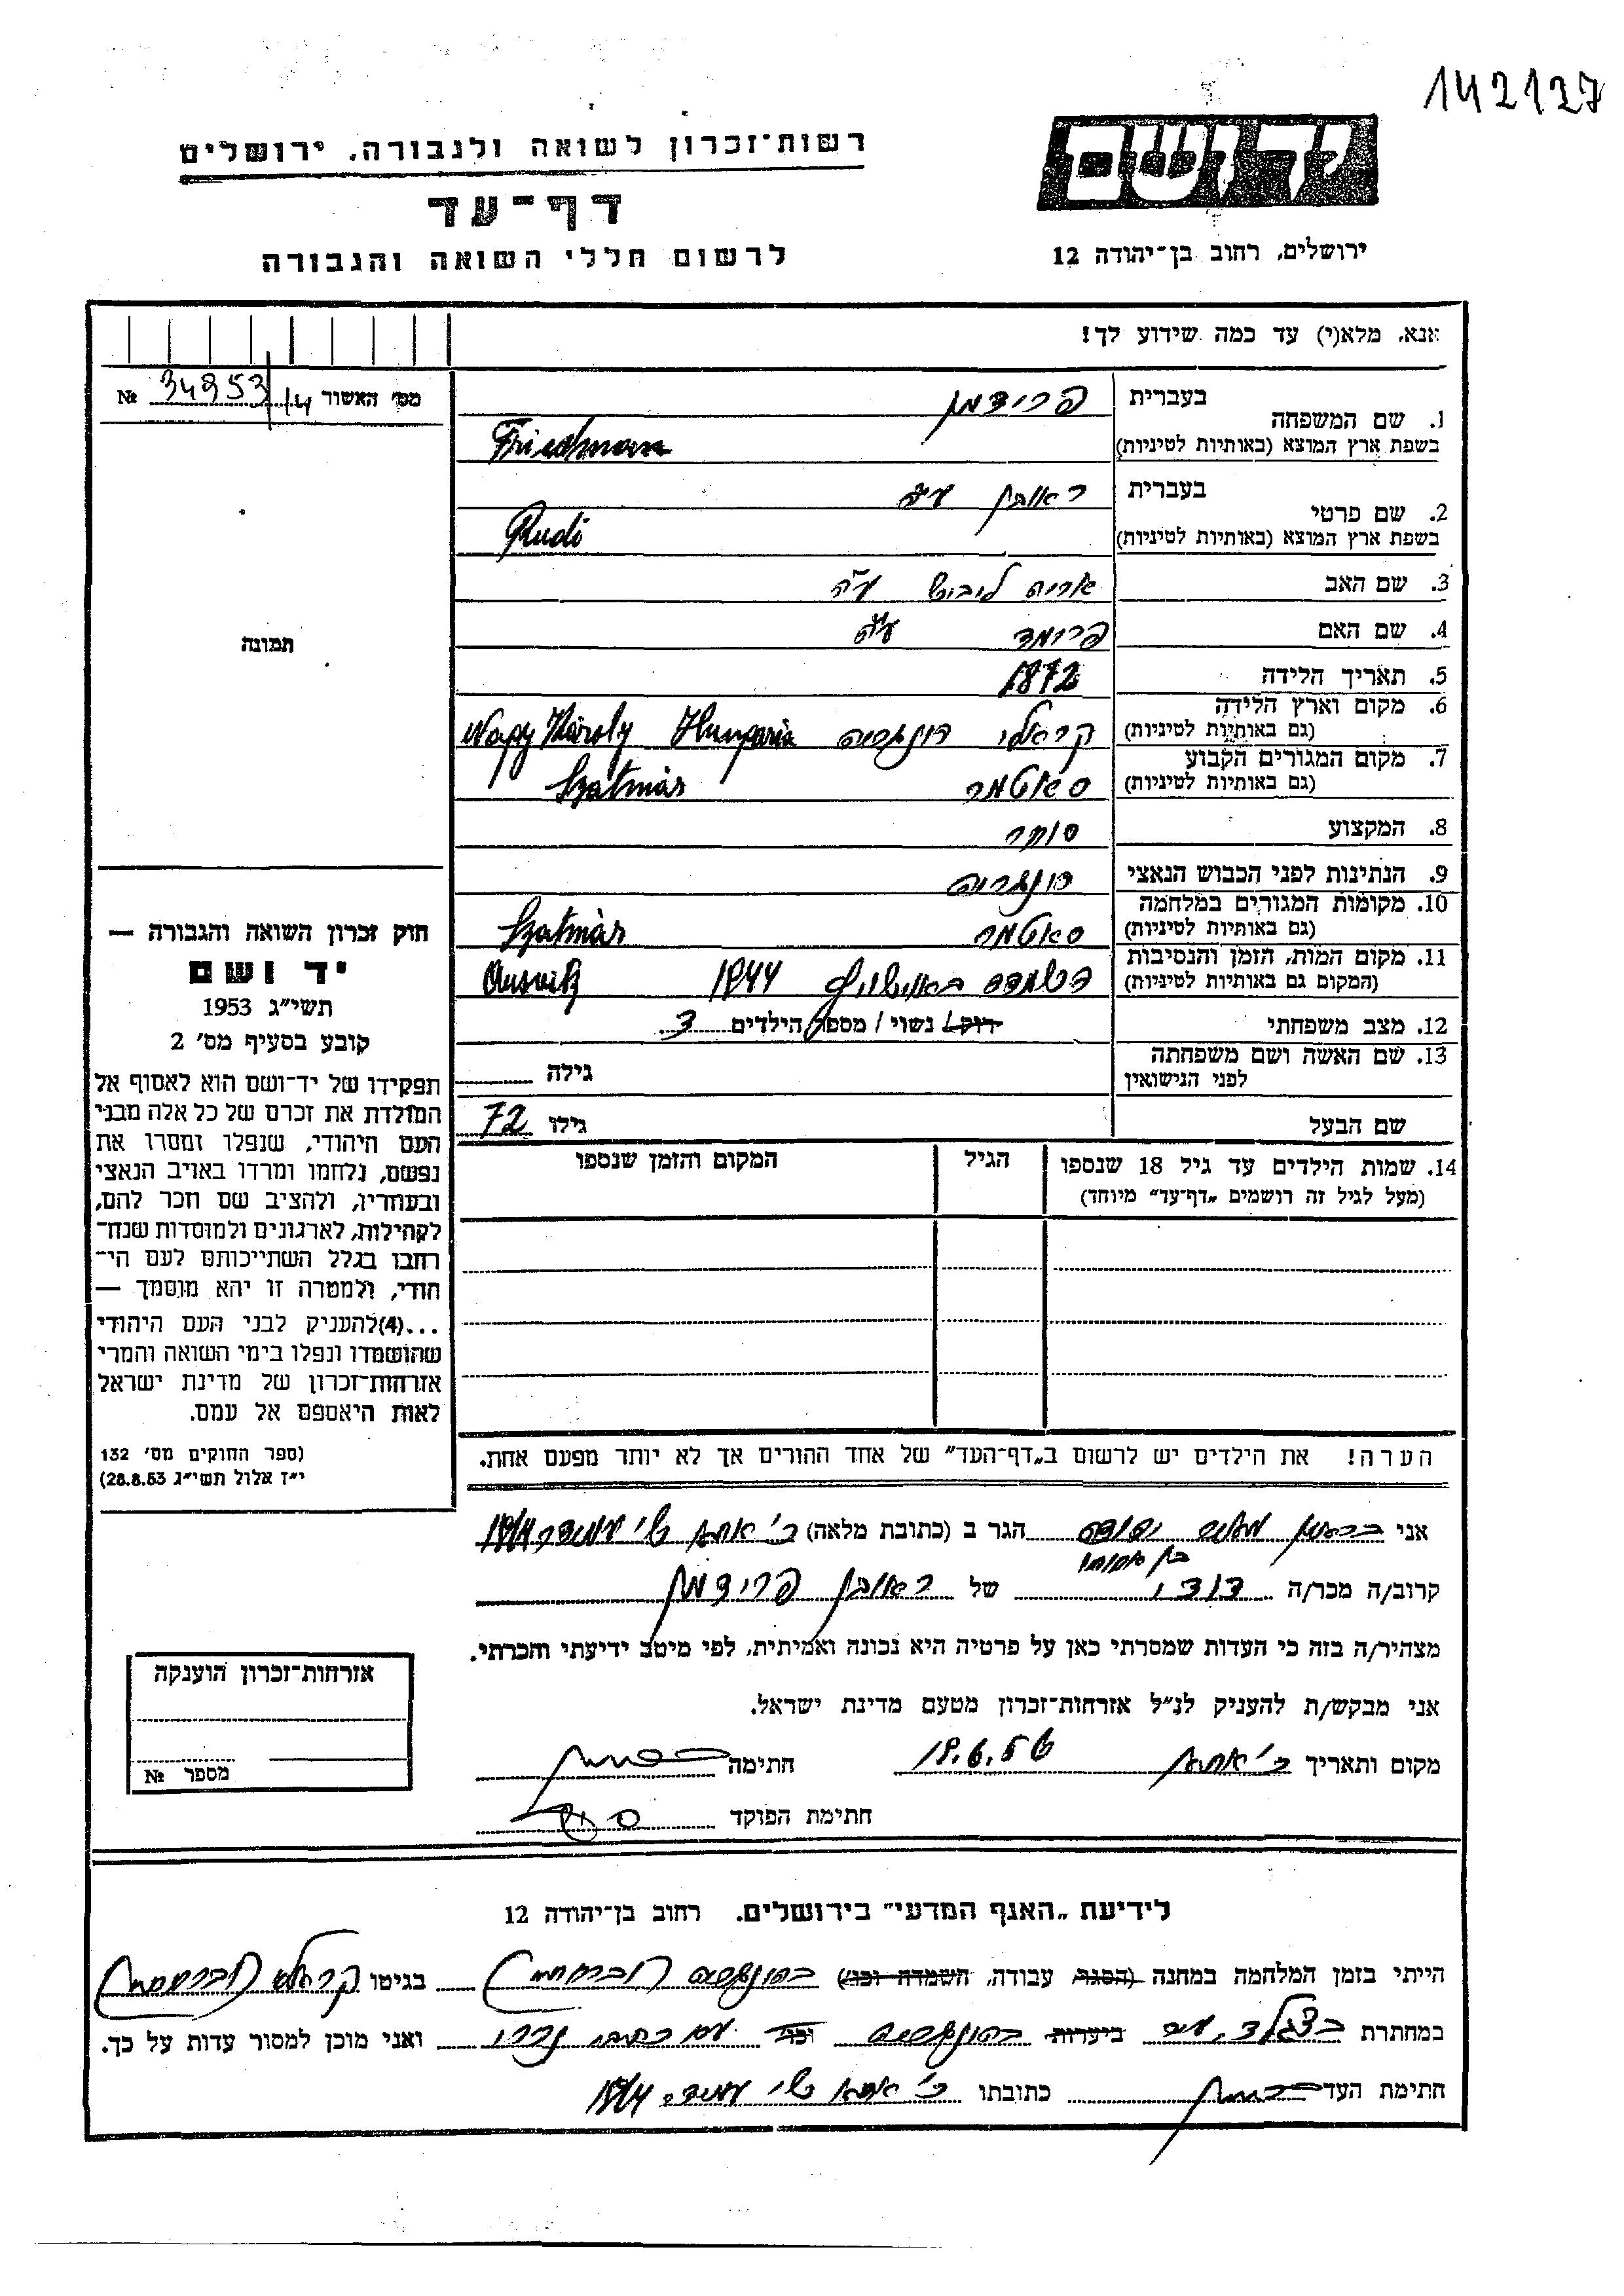 142127
יד ושם
ירושלים, רחוב בן־יהודה 12
רשות־זכרון לשואה ולגבורה, ירושלים
דף־עד
לרשום חללי השואה והגבורה
אנא, מלא(י) עד כמה שידוע לך!
מס׳ האשור 14/ 34953 №
תמונה
1. שם המשפחה
בעברית פרידמן
בשפת ארץ המוצא (באותיות לטיניות) Friedman
2. שם פרטי
בעברית ראובן ע״ה
בשפת ארץ המוצא (באותיות לטיניות) Rudi
3. שם האב אריה ליבוש ע״ה
4. שם האם פרומד ע״ה
5. תאריך הלידה 1872
6. מקום וארץ הלידה
(גם באותיות לטיניות) קראלי הונגריה Nagy Károly Hungaria
7. מקום המגורים הקבוע
(גם באותיות לטיניות) סאטמר Szatmár
8. המקצוע סוחר
9. הנתינות לפני הכבוש הנאצי הונגריה
10. מקומות המגורים במלחמה
(גם באותיות לטיניות) סאטמר Szatmár
11. מקום המות, הזמן והנסיבות
(המקום גם באותיות לטיניות) השמדה באושויץ 1944
12. מצב משפחתי רוק/ נשוי / מספר הילדים 3
13. שם האשה ושם משפחתה
לפני הנישואין גילה
שם הבעל גילו 72
14. שמות הילדים עד גיל 18 שנספו הגיל המקום והזמן שנספו
(מעל לגיל זה רושמים „דף־עד״ מיוחד)
הערה! את הילדים יש לרשום ב„דף־העד״ של אחד ההורים אך לא יותר מפעם אחת.
חוק זכרון השואה והגבורה —
יד ושם
תשי״ג 1953
קובע בסעיף מס׳ 2
תפקידו של יד־ושם הוא לאסוף אל
המולדת את זכרם של כל אלה מבני
העם היהודי, שנפלו ומסרו את
נפשם, נלחמו ומרדו באויב הנאצי
ובעוזריו, ולהציב שם וזכר להם,
לקהילות, לארגונים ולמוסדות שנח־
רבו בגלל השתייכותם לעם הי־
הודי, ולמטרה זו יהא מוסמך —
...(4)להעניק לבני העם היהודי
שהושמדו ונפלו בימי השואה והמרי
אזרחות־זכרון של מדינת ישראל
לאות היאספם אל עמם.
(ספר החוקים מס׳ 132
י״ז אלול תשי״ג 28.8.53)
אני יהודה הגר ב (כתובת מלאה) ק׳ אתא
קרוב/ה מכר/ה דודי של ראובן פרידמן
מצהיר/ה בזה כי העדות שמסרתי כאן על פרטיה היא נכונה ואמיתית, לפי מיטב ידיעתי והכרתי.
אני מבקש/ת להעניק לנ״ל אזרחות־זכרון מטעם מדינת ישראל.
מקום ותאריך ק׳ אתא 19.6.56 חתימה
חתימת הפוקד
אזרחות־זכרון הוענקה
מספר №
לידיעת „האגף המדעי״ בירושלים, רחוב בן־יהודה 12
הייתי בזמן המלחמה במחנה (הסגר עבודה, השמדה וכו׳) בהונגריה בגיטו קראלי
במחתרת ביערות בהונגריה וכו׳ ואני מוכן למסור עדות על כך.
חתימת העד כתובתו ק׳ אתא